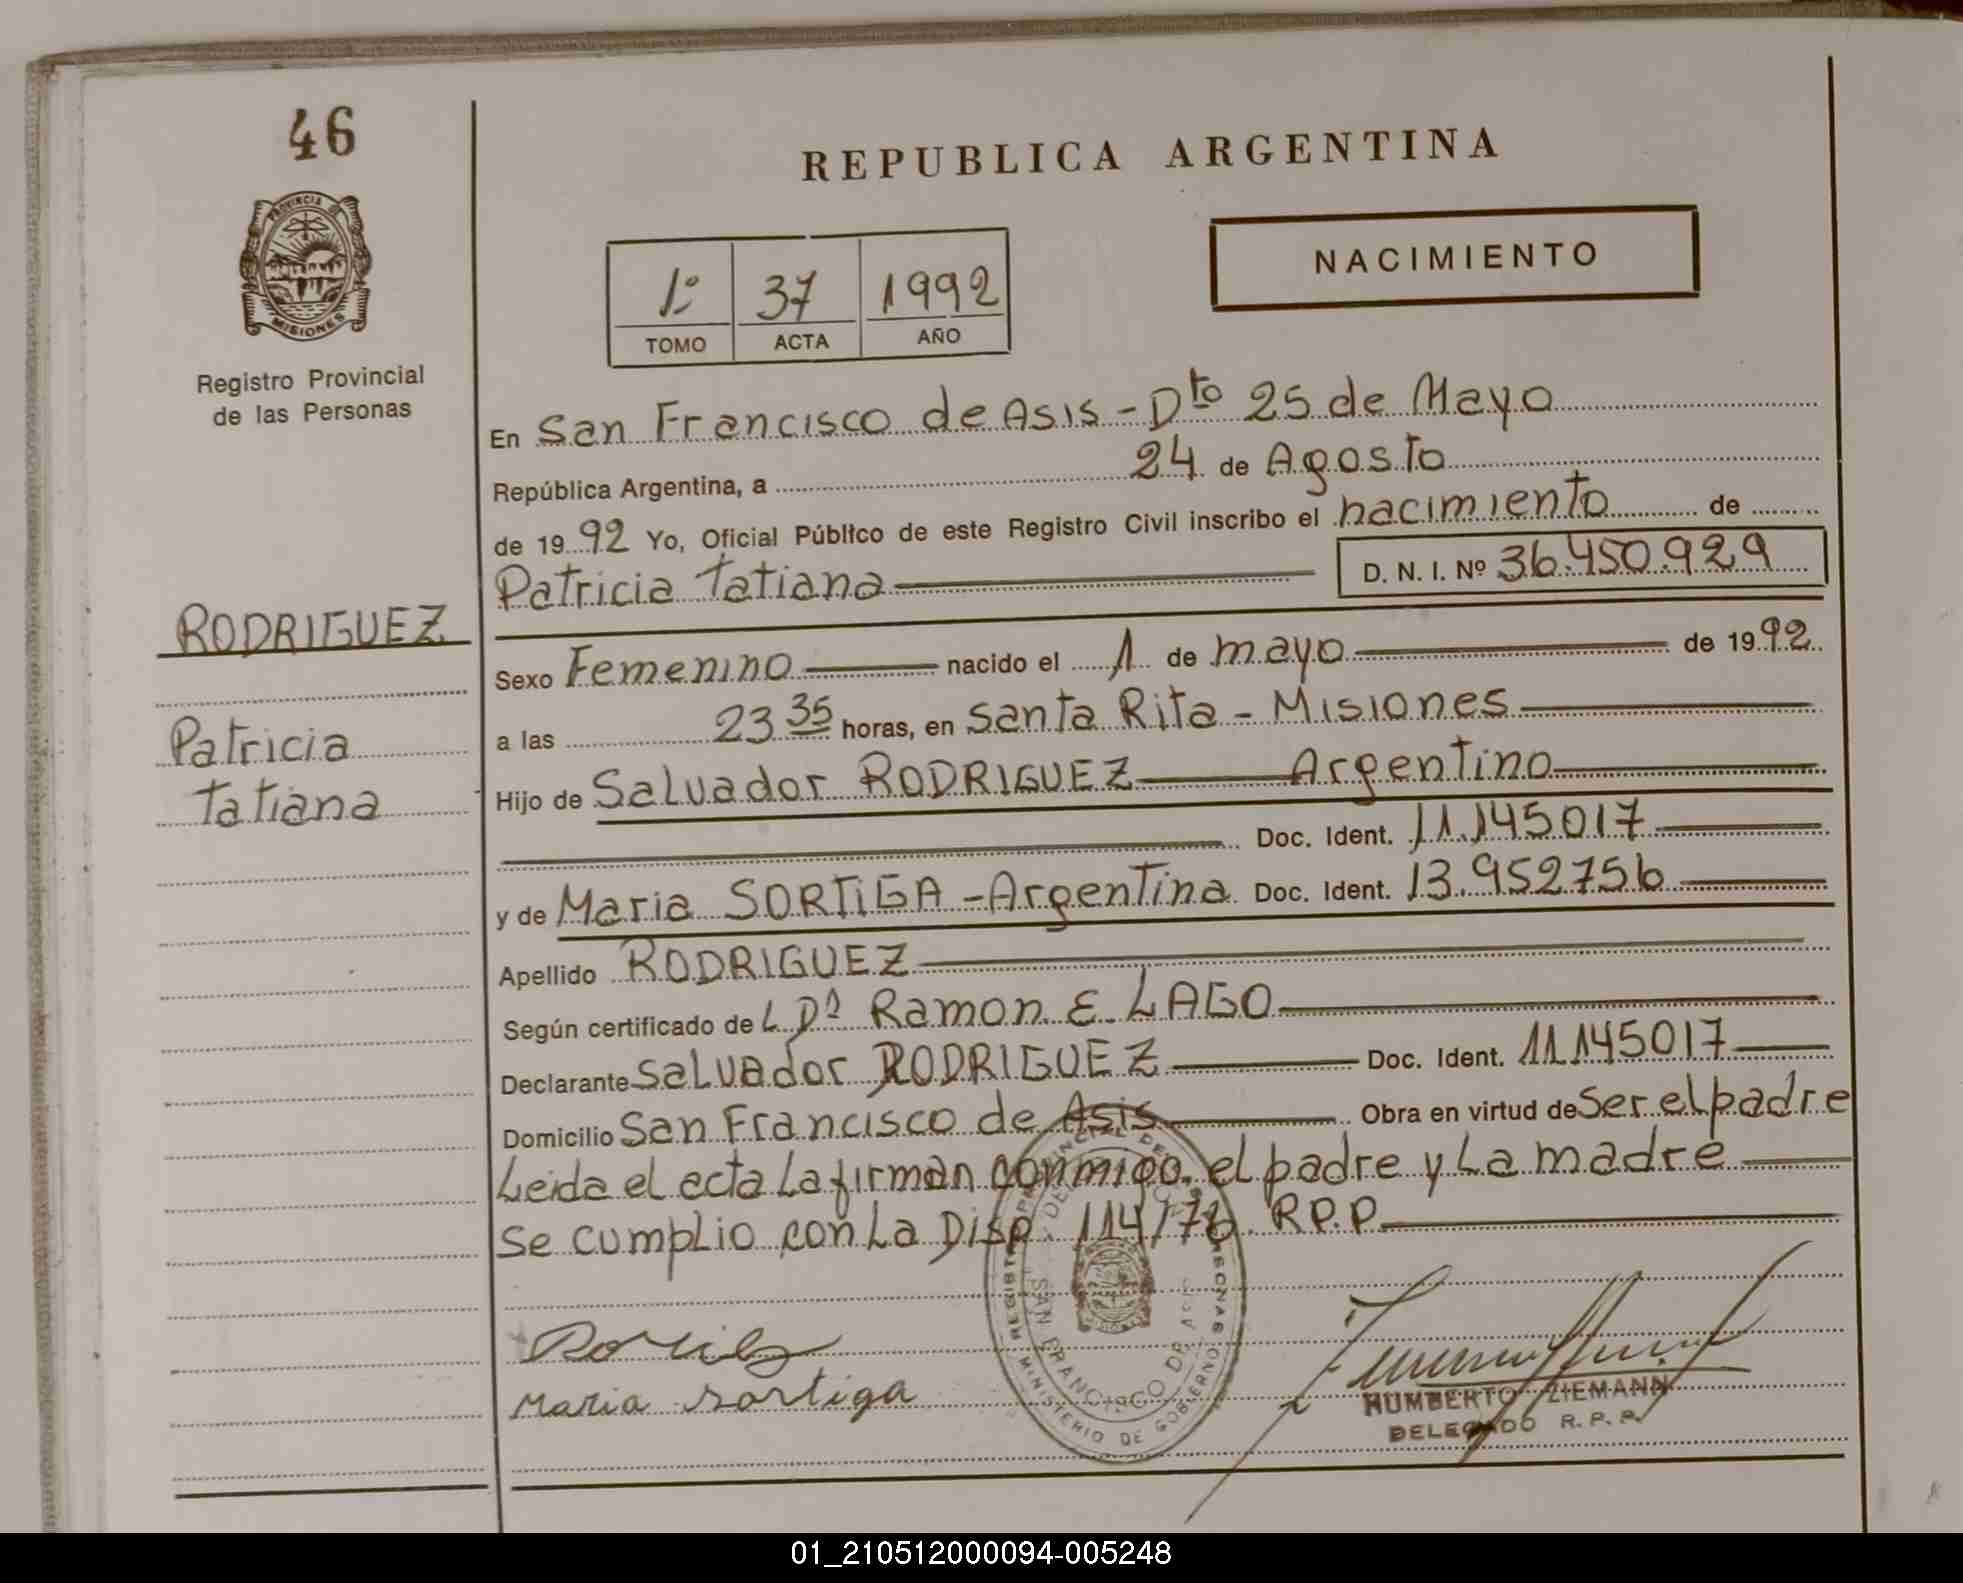 46
PROVINCIA DE
MISIONES
Registro Provincial
de las Personas
RODRIGUEZ
Patricia
Tatiana
REPUBLICA ARGENTINA
1º 37 1992
TOMO ACTA AÑO
NACIMIENTO
En San Francisco de Asis - Dto 25 de Mayo
República Argentina, a 24 de Agosto
de 1992 Yo, Oficial Público de este Registro Civil inscribo el nacimiento de
Patricia Tatiana D. N. I. Nº 36.450.929
Sexo Femenino nacido el 1 de mayo de 1992
a las 23 35 horas, en Santa Rita - Misiones
Hijo de Salvador RODRIGUEZ Argentino
Doc. Ident. 11.145017
y de Maria SORTIGA - Argentina Doc. Ident. 13.952756
Apellido RODRIGUEZ
Según certificado de L Dª Ramon E. LAGO
Declarante Salvador RODRIGUEZ Doc. Ident. 11.145017
Domicilio San Francisco de Asis Obra en virtud de Ser el padre
Leida el acta La firman conmigo. el padre y La madre
Se cumplio con La Disp. 114/76. R.P.P
Maria Sortiga
SAN FRANCISCO DE ASIS
MINISTERIO DE GOBIERNO
HUMBERTO ZIEMANN
DELEGADO R. P. P.
01_210512000094-005248